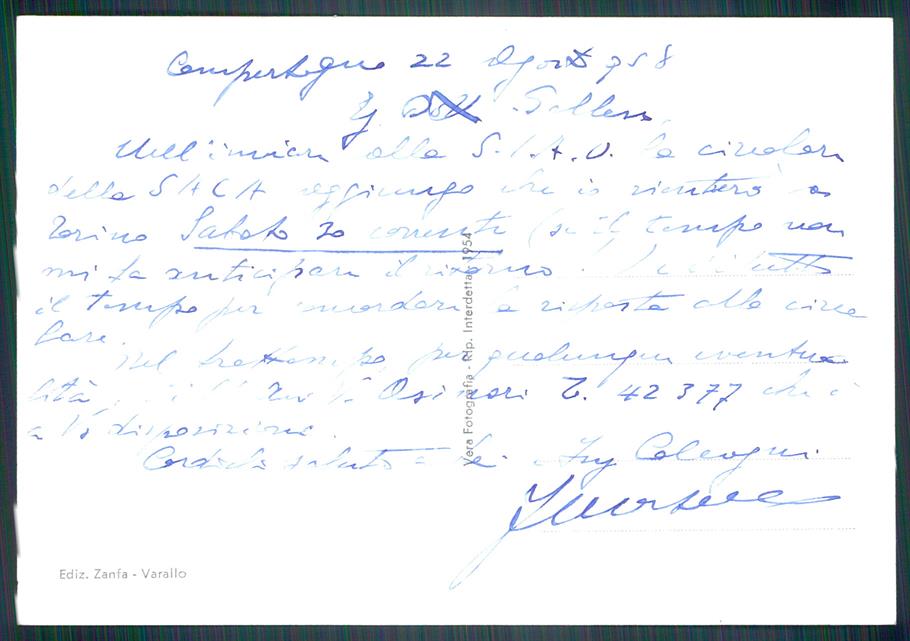 Campertogno 22 Agosto 958
Nell'inviare alla S.I.A.O. la circolare
della SACA aggiungo che io rientrerò a
Torino Sabato 30 corrente (se il tempo non
mi fa anticipare il ritorno.
il tempo per mandare la risposta alla circo
lare.
Nel frattempo, per qualunque eventua
lità 42377 che è
a disposizione.
Cordiali saluti Ing
Vera Fotografia - Rip. Interdetta - 1954
Ediz. Zanfa - Varallo